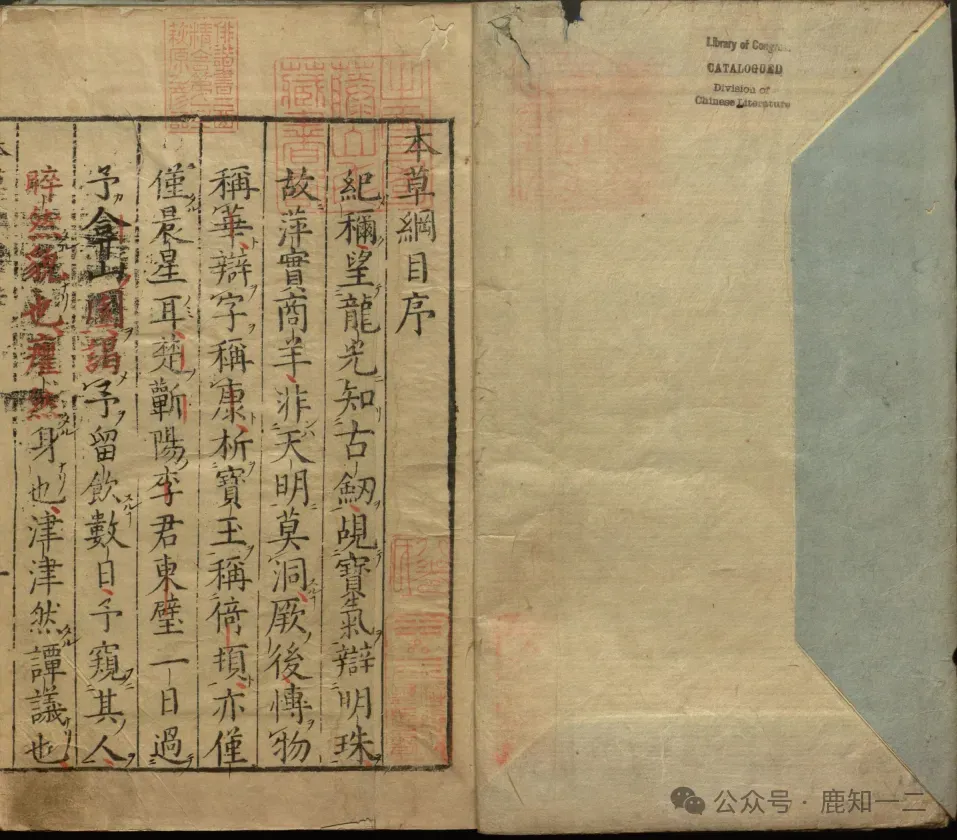 Library of Congress
CATALOGUED
Division of
Chinese Literature
本草綱目序
紀稱望龍光知古劔覘寶氣辯明珠
故萍實商羊非天明莫洞厥後博物
稱華辯字稱康析寶玉稱倚頓亦僅
僅晨星耳楚蘄陽李君東璧一日過
予弇山園謁予留飲數日予窺其人
睟然貌也癯然身也津津然譚議也
公众号 · 鹿知一二